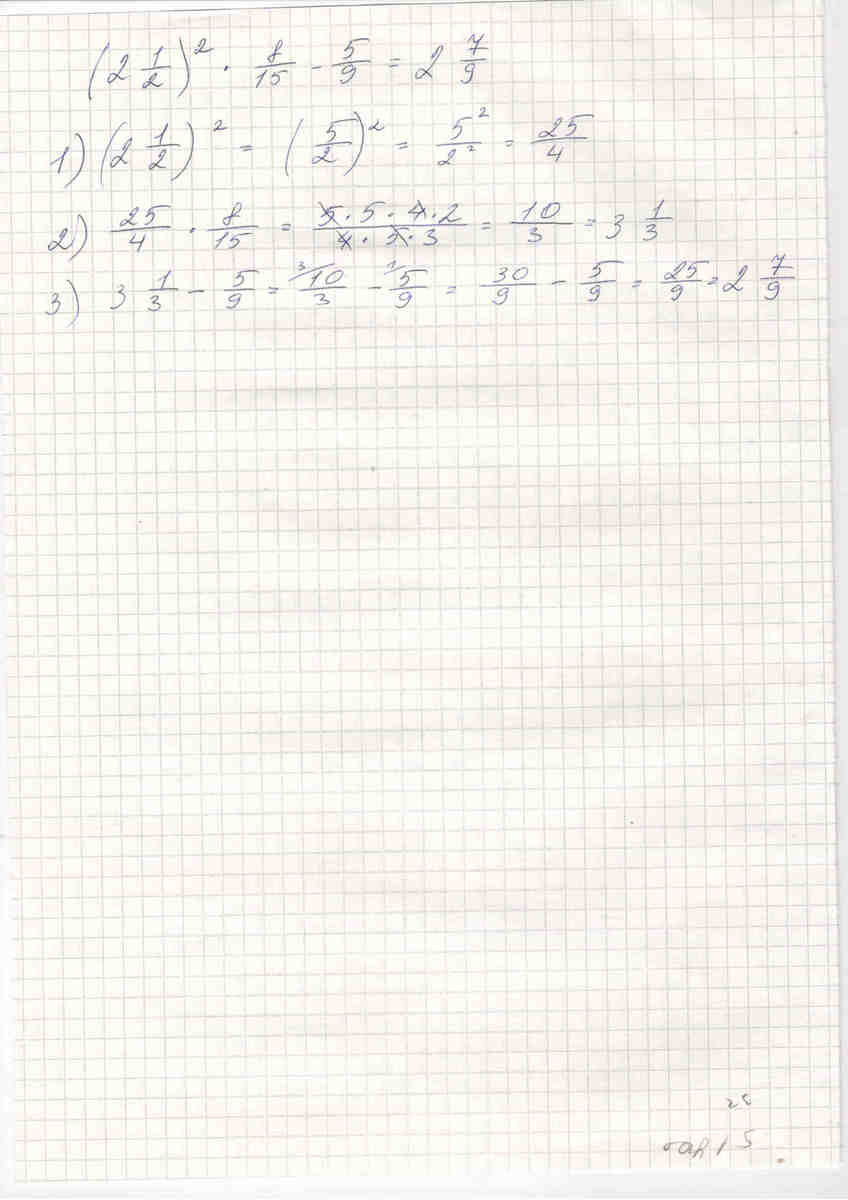 (2 1/2)² · 8/15 - 5/9 = 2 7/9
1) (2 1/2)² = (5/2)² = 5²/2² = 25/4
2) 25/4 · 8/15 = 5·5·4·2/4·5·3 = 10/3 = 3 1/3
3) 3 1/3 - 5/9 = ³⁄10/3 - ¹⁄5/9 = 30/9 - 5/9 = 25/9 = 2 7/9